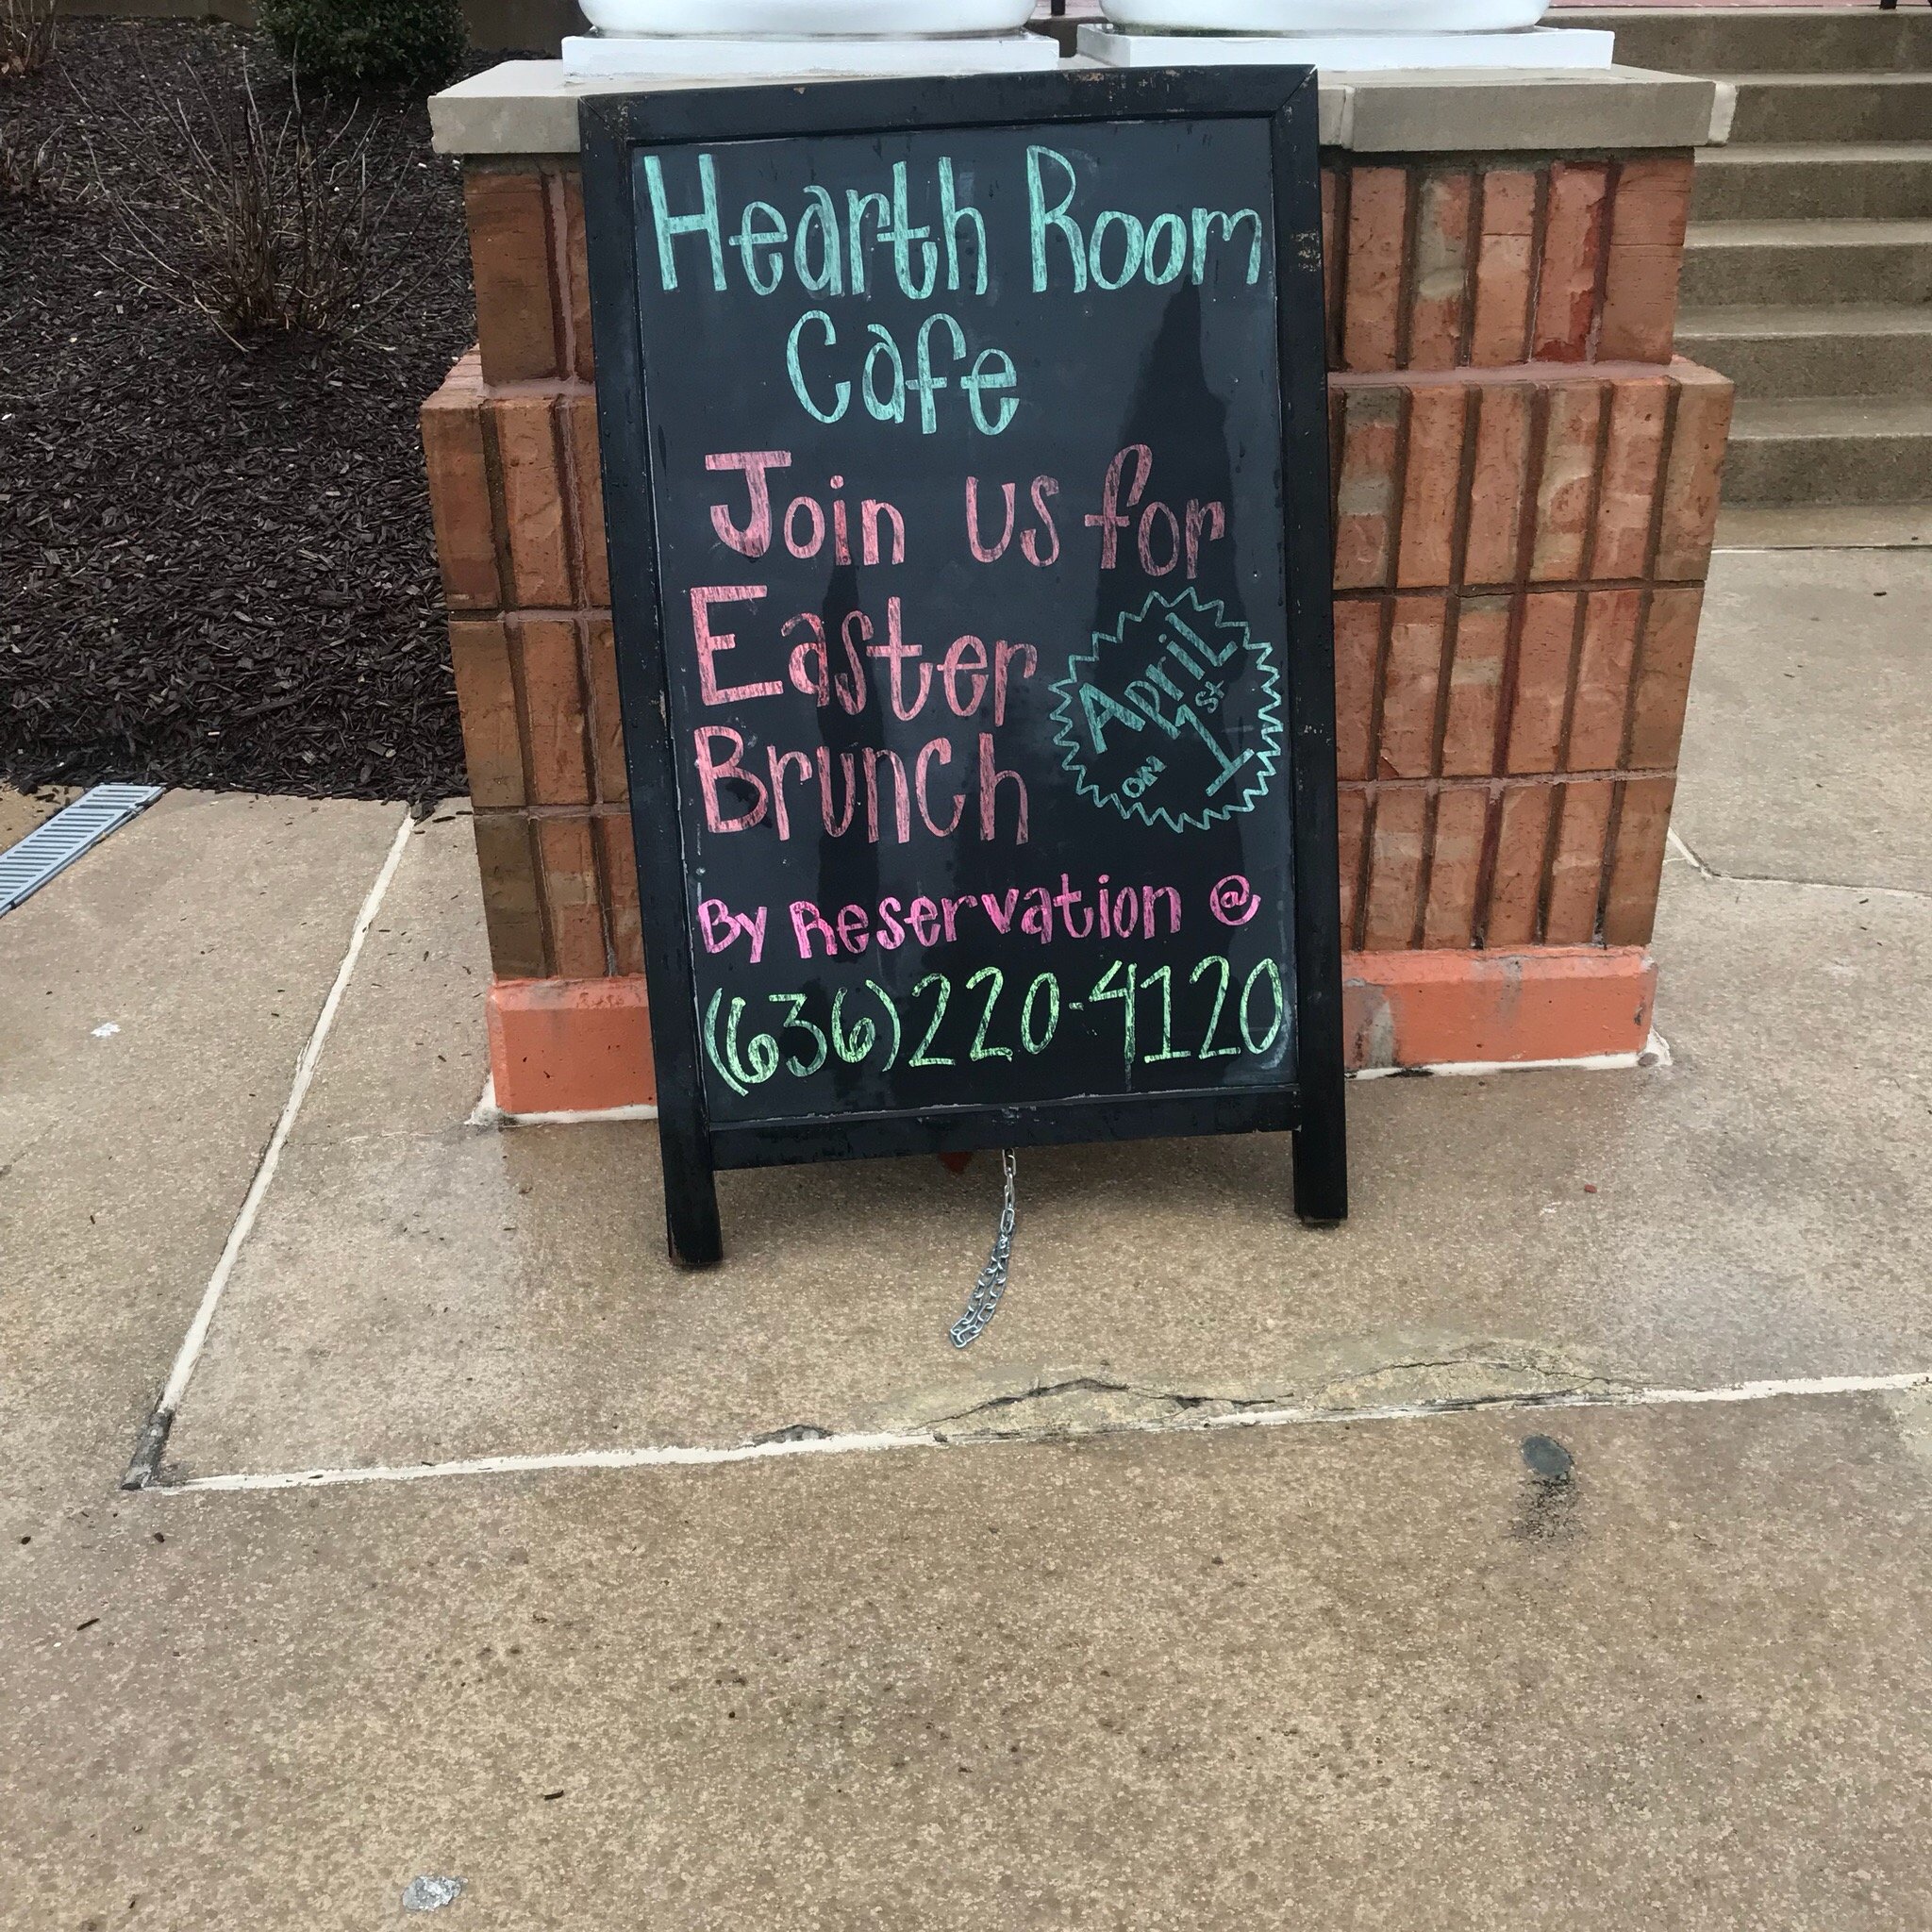 Hearth Room
Cafe
Join us for
Easter
Brunch
on
April
1st
By Reservation @
(636)220-4120